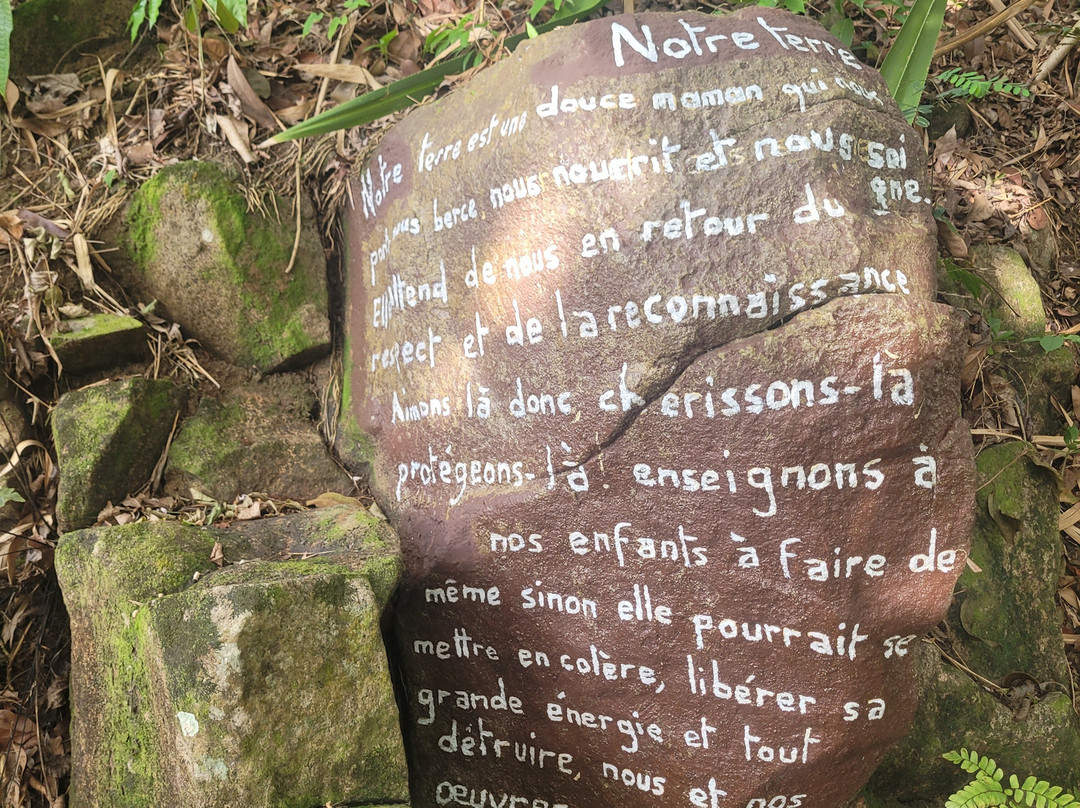 Notre terre
Notre terre est une douce maman qui nous
porte, nous berce, nous nourrit et nous soi
gne.
Elle attend de nous en retour du
respect et de la reconnaissance
Aimons là donc, chérissons-la
protégeons-là! enseignons à
nos enfants à faire de
même sinon elle pourrait se
mettre en colère, libérer sa
grande énergie et tout
détruire, nous et nos
oeuvres